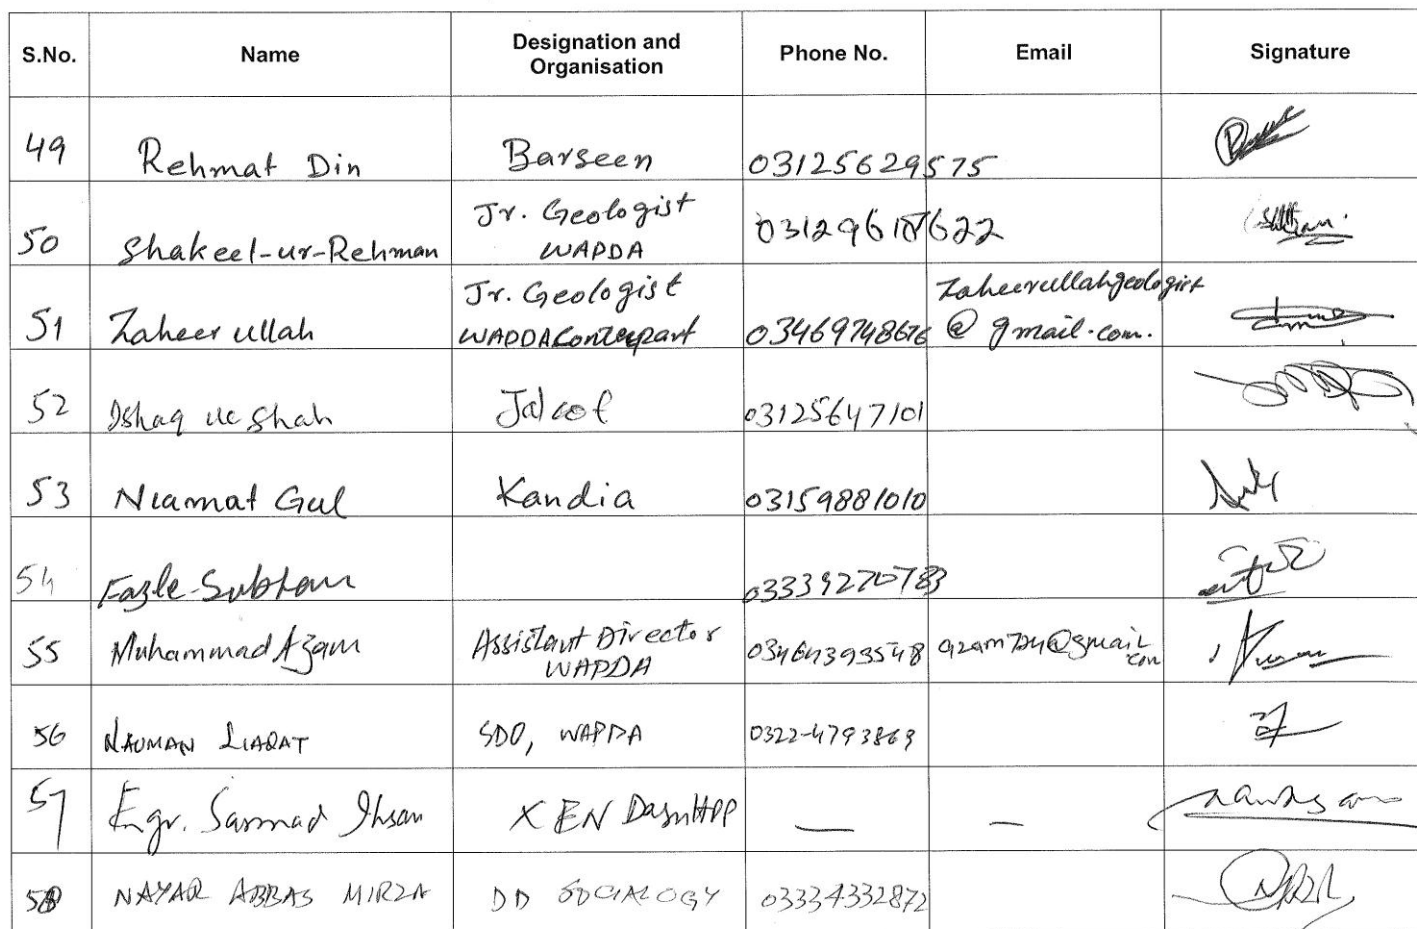 S.No. Name Designation and Organisation Phone No. Email Signature
49 Rehmat Din Barseen 03125629575
50 Shakeel-ur-Rehman Jr. Geologist WAPDA
51 Zaheer ullah Jr. Geologist WAPDA Zaheerullahgeologist @gmail.com.
52 Ishaq Shah 03125647101
53 Niamat Gul Kandia 03159881010
54 Fazle Subhan 03339270783
55 Muhammad Azam Assistant Director WAPDA 03464393548
56 NAUMAN LIAQAT SDO, WAPDA 0322-4793869
57 Engr. Sarmad Ihsan XEN Dasu HPP — —
58 NAYAR ABBAS MIRZA DD SOCIALOGY 03334332872